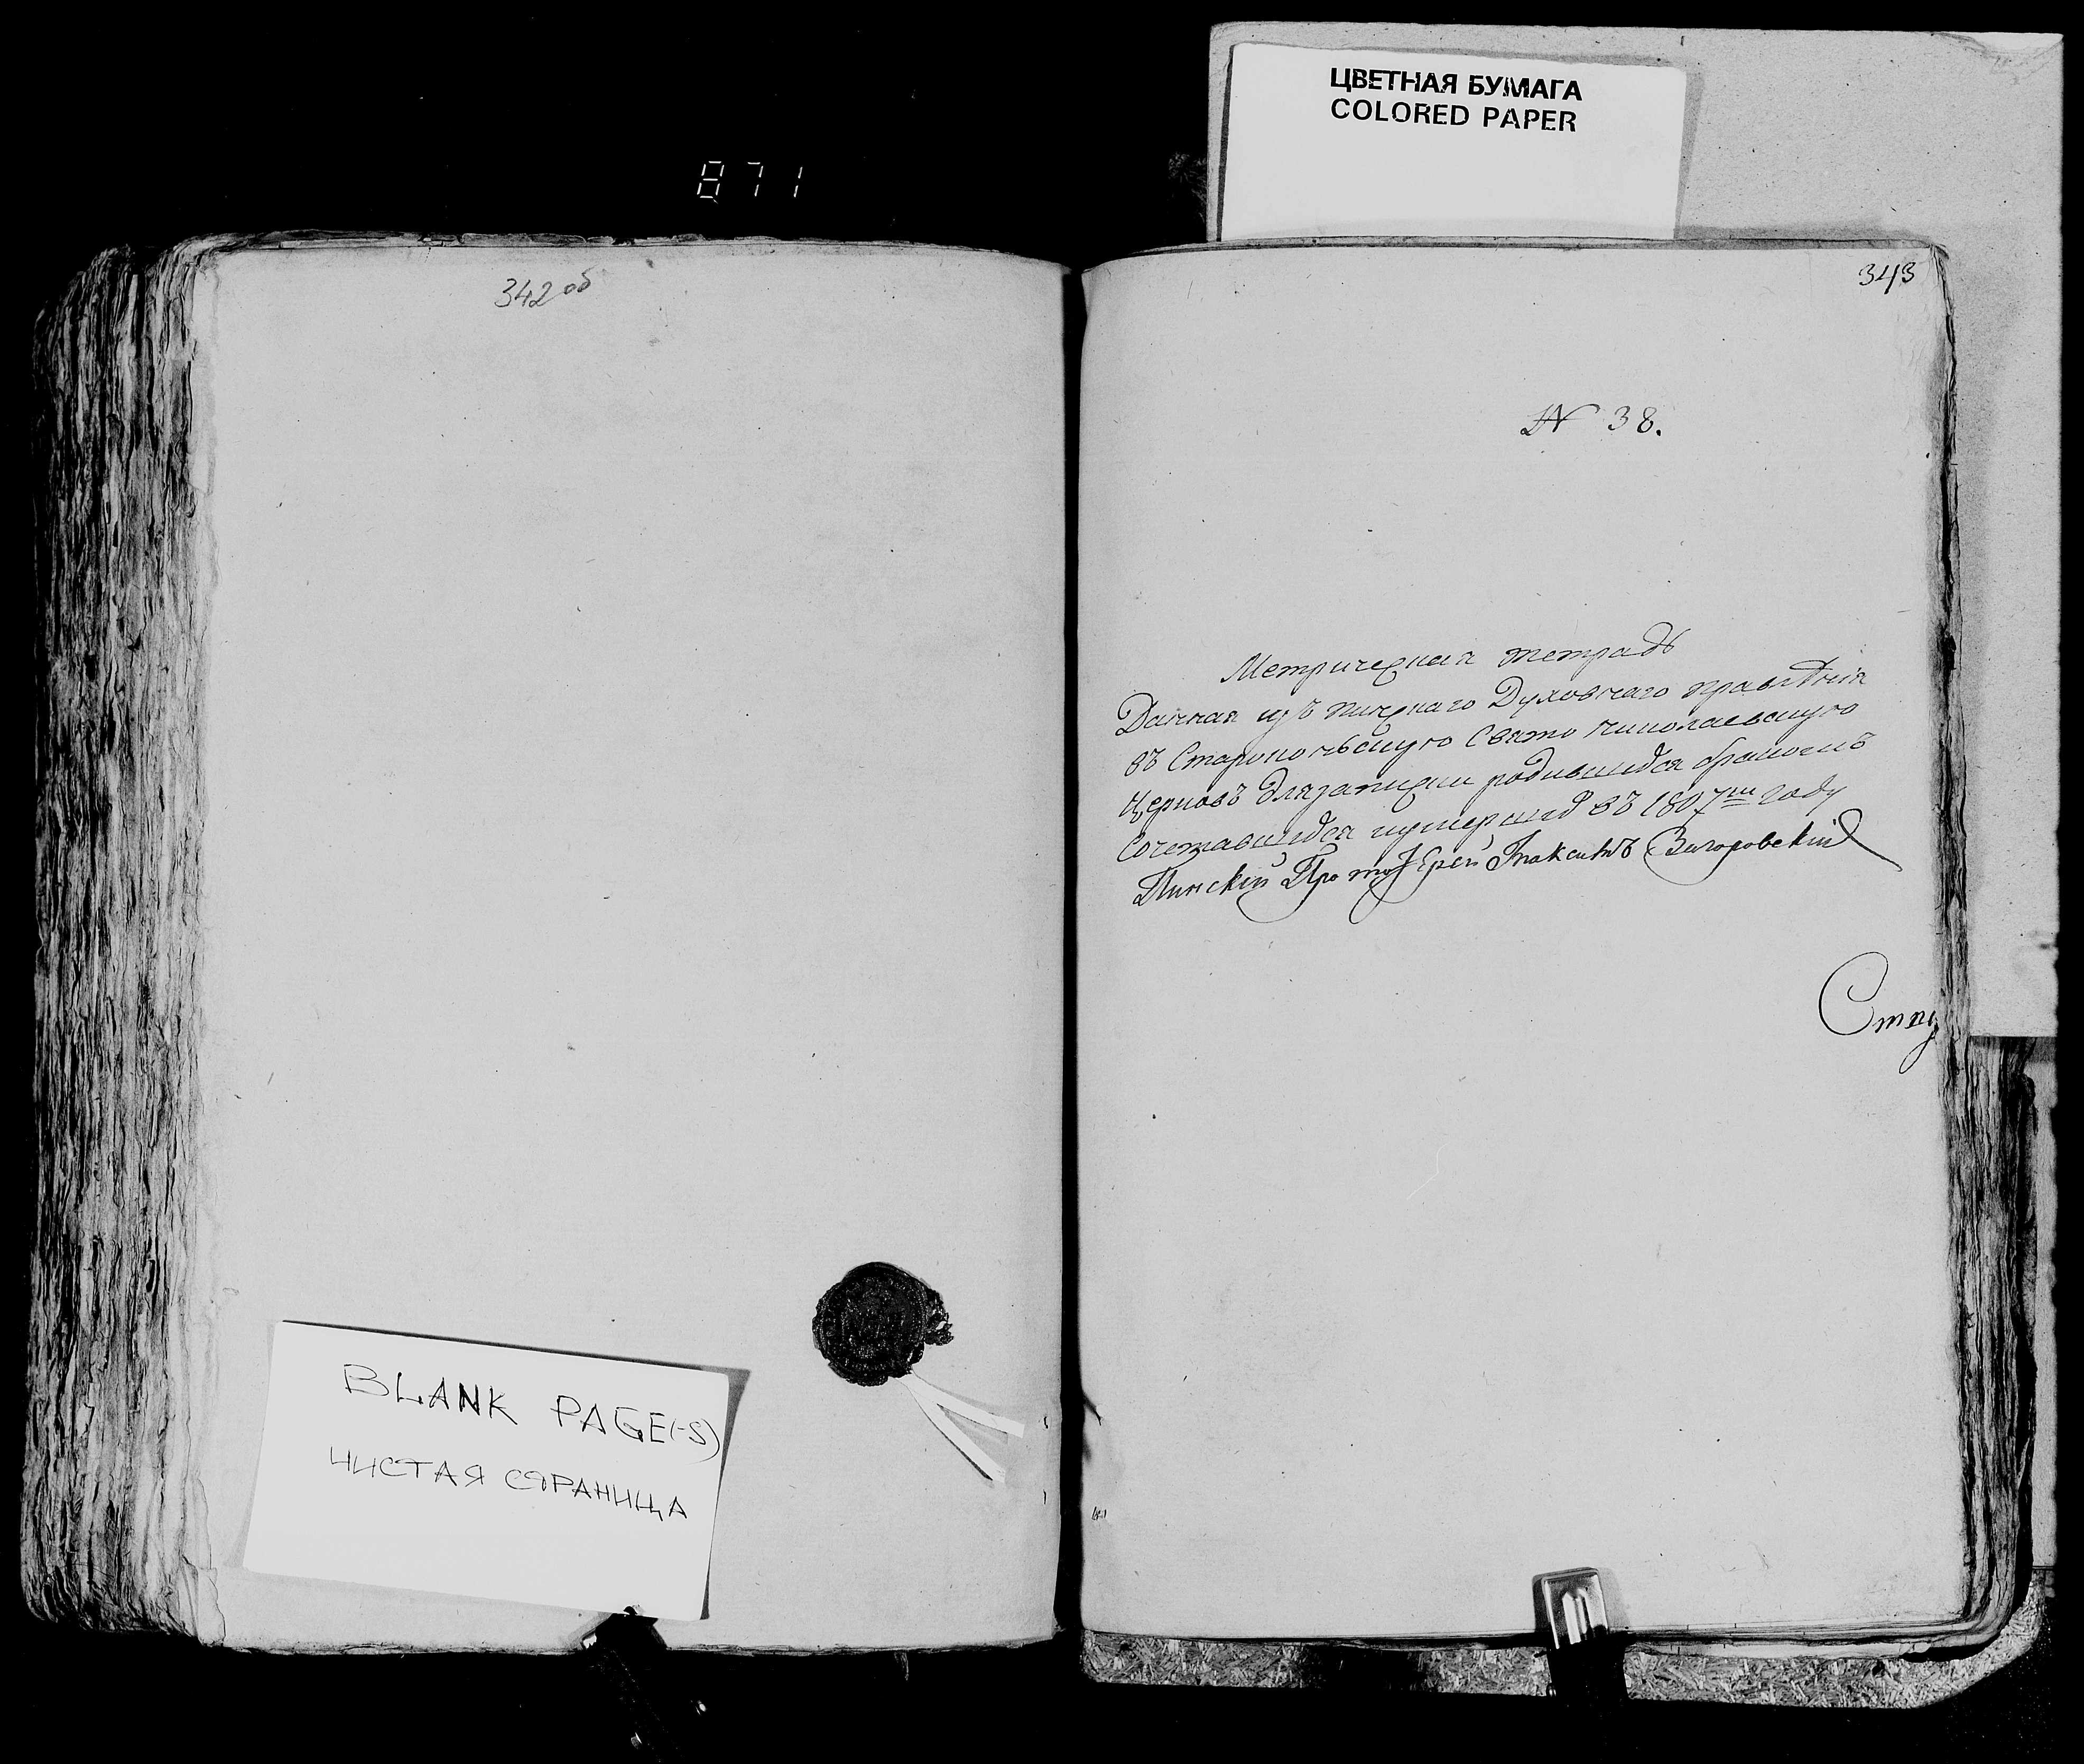 ЦВЕТНАЯ БУМАГА
COLORED PAPER
871
342 об
343
№ 38.
Метрическая тетрадь
Данная изъ пинскаго Духовнаго правленія
въ Староконскую Свято николаевскую
Церковь для записки родившихся бракомъ
Сочетавшихся иумершихъ въ 1807ми году
Пинскій Протоіерей Іоакимъ Загоровскій
BLANK PAGE(-S)
ЧИСТАЯ СТРАНИЦА